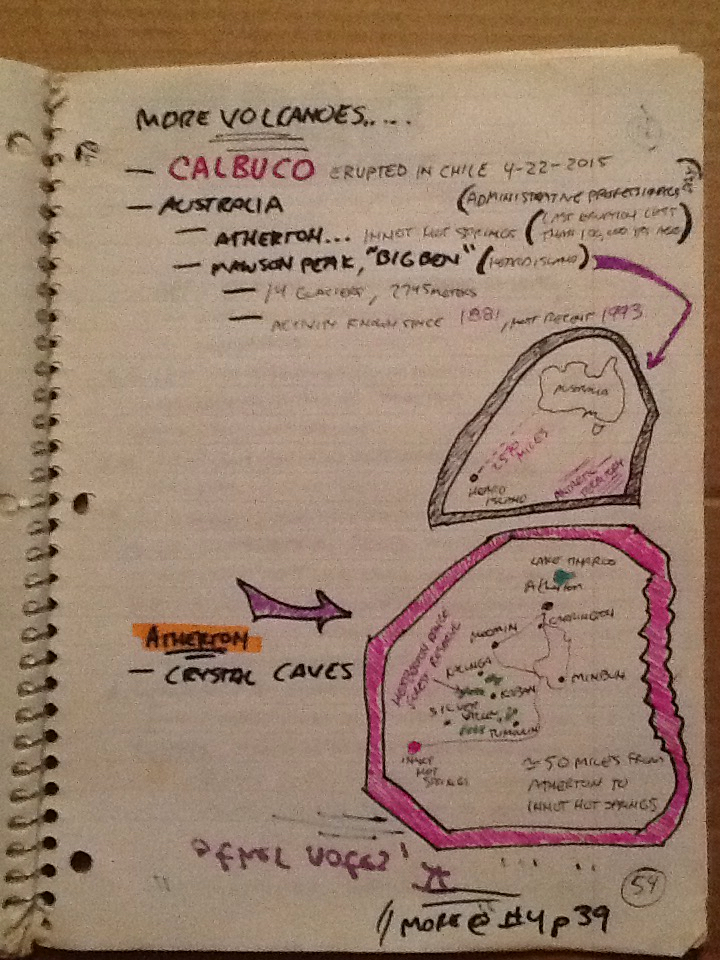 MORE VOLCANOES.....
— CALBUCO ERUPTED IN CHILE 4-22-2015
(ADMINISTRATIVE PROFESSIONALS DAY)
— AUSTRALIA
— ATHERTON... INNOT HOT SPRINGS (LAST ERUPTION LESS THAN 100,000 YRS AGO)
— MAWSON PEAK, "BIG BEN" (HEARD ISLAND)
— 14 GLACIERS, 2745 METERS
— ACTIVITY KNOWN SINCE 1881, MOST RECENT 1993
AUSTRALIA
MILES
HEARD
ISLAND
ANTARCTIC
TERRITORY
LAKE TINAROO
Atherton
CARRINGTON
WONDECLA
ATHERTON
— CRYSTAL CAVES
HERBERTON RANGE
FOREST RESERVE
KALUNGA
KABAN
SILVER
VALLEY
TUMOULIN
INNOT
HOT
SPRINGS
≈ 50 MILES FROM
ATHERTON TO
INNOT HOT SPRINGS
54
// MORE @ #4 p 39